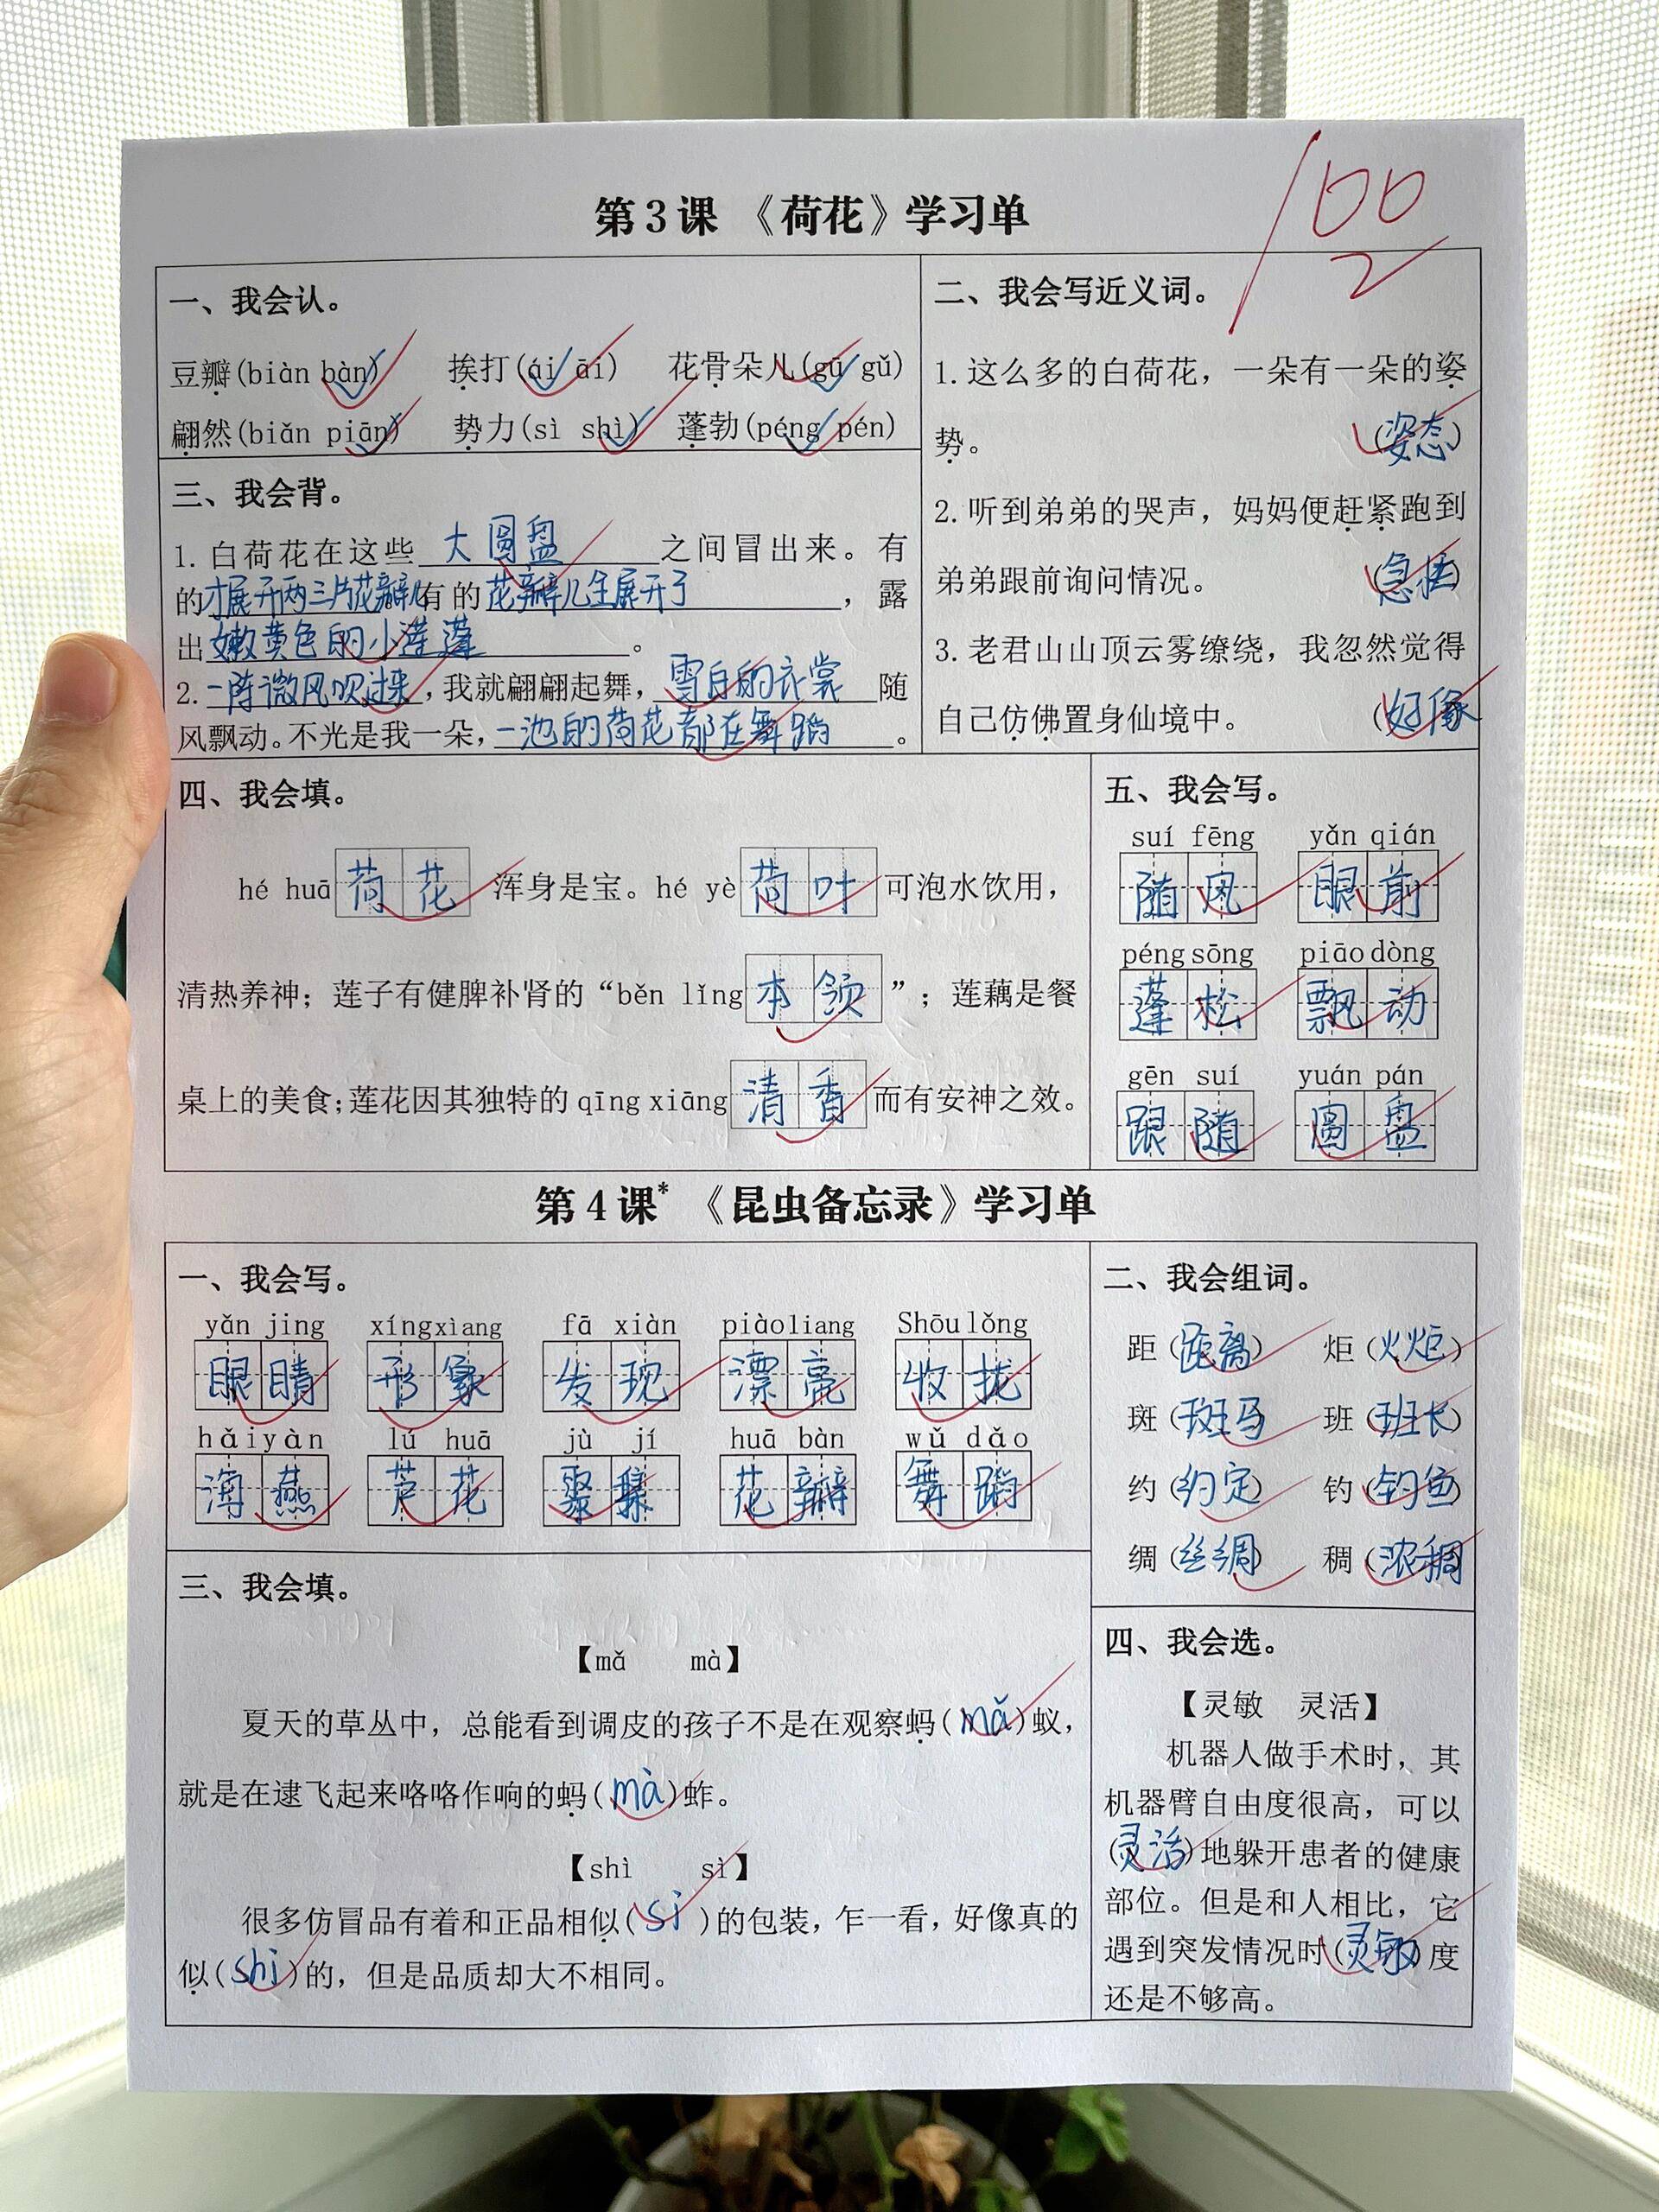 第3课 《荷花》学习单
100
2
一、我会认。
豆瓣(biàn bàn) 挨打(ái āi) 花骨朵儿(gū gǔ)
翩然(biǎn piān) 势力(sì shì) 蓬勃(péng pén)
二、我会写近义词。
1.这么多的白荷花，一朵有一朵的姿
势。 (姿态)
2.听到弟弟的哭声，妈妈便赶紧跑到
弟弟跟前询问情况。 (急忙)
3.老君山山顶云雾缭绕，我忽然觉得
自己仿佛置身仙境中。 (好像
三、我会背。
1.白荷花在这些 大圆盘 之间冒出来。有
的才展开两三片花瓣儿有的花瓣儿全展开了，露
出嫩黄色的小莲蓬。
2.一阵微风吹过来,我就翩翩起舞,雪白的衣裳随
风飘动。不光是我一朵,一池的荷花都在舞蹈。
四、我会填。
hé huā 荷花 浑身是宝。hé yè 荷叶 可泡水饮用，
清热养神；莲子有健脾补肾的“běn lǐng 本领”；莲藕是餐
桌上的美食;莲花因其独特的 qīng xiāng 清香 而有安神之效。
五、我会写。
suí fēng yǎn qián
随风 眼前
péng sōng piāo dòng
蓬松 飘动
gēn suí yuán pán
跟随 圆盘
第4课* 《昆虫备忘录》学习单
一、我会写。
yǎn jing xíng xiàng fā xiàn piào liang Shōu lǒng
眼睛 形象 发现 漂亮 收拢
hǎi yàn lú huā jù jí huā bàn wǔ dǎo
海燕 芦花 聚集 花瓣 舞蹈
二、我会组词。
距(距离) 炬(火炬)
斑(斑马 班(班长)
约(约定) 钓(钓鱼)
绸(丝绸) 稠(浓稠
三、我会填。
【mǎ mà】
夏天的草丛中，总能看到调皮的孩子不是在观察蚂(mǎ)蚁，
就是在逮飞起来咯咯作响的蚂(mà)蚱。
【shì sì】
很多仿冒品有着和正品相似(sì)的包装,乍一看,好像真的
似(shì)的，但是品质却大不相同。
四、我会选。
【灵敏 灵活】
机器人做手术时，其
机器臂自由度很高，可以
(灵活)地躲开患者的健康
部位。但是和人相比，它
遇到突发情况时(灵敏)度
还是不够高。